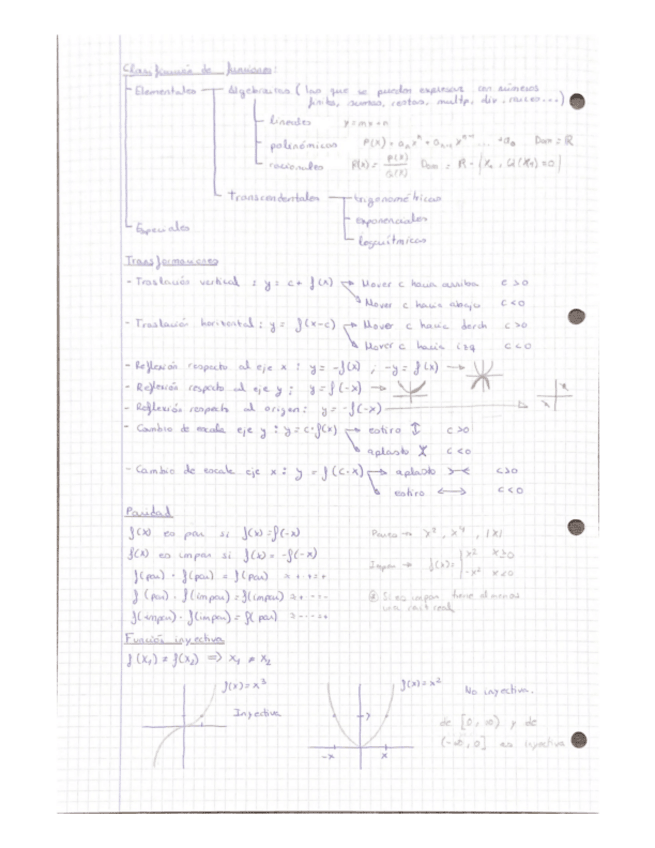 Clasificación de funciones:
Elementales
Algebraicas (las que se pueden expresar con números
finito, sumas, restas, multp, div, raíces...)
lineales y = mx + n
polinómicas P(x) = aₙxⁿ + aₙ₋₁xⁿ⁻¹ ... + a₀ Dom = ℝ
racionales R(x) = P(x)/Q(x) Dom = ℝ - {x₁, Q(x₁) = 0}
Transcendentales
trigonométricas
exponenciales
logarítmicas
Especiales
Transformaciones
- Traslación vertical : y = c + f(x) → Mover c hacia arriba c > 0
→ Mover c hacia abajo c < 0
- Traslación horizontal : y = f(x-c) → Mover c hacia derch c > 0
→ Mover c hacia izq c < 0
- Reflexión respecto al eje x : y = -f(x) ; -y = f(x) →
- Reflexión respecto al eje y ; y = f(-x) →
- Reflexión respecto al origen : y = -f(-x)
- Cambio de escala eje y : y = c·f(x) → estiro ↕ c > 0
→ aplasto c < 0
- Cambio de escala eje x : y = f(c·x) → aplasto >-< c > 0
→ estiro ↔ c < 0
Paridad
f(x) es par si f(x) = f(-x)
Pares → x², x⁴, |x|
f(x) es impar si f(x) = -f(-x)
Impar → f(x) = { x² x ≥ 0
-x² x < 0
f(par) · f(par) = f(par) = + · + = +
f(par) · f(impar) = f(impar) = + · - = -
Si es impar tiene al menos
una raíz real
f(impar) · f(impar) = f(par) = - · - = +
Función inyectiva
f(x₁) = f(x₂) ⇒ x₁ = x₂
f(x) = x³
Inyectiva
f(x) = x²
No inyectiva.
y
-x
x
de [0, ∞) y de
(-∞, 0] es inyectiva